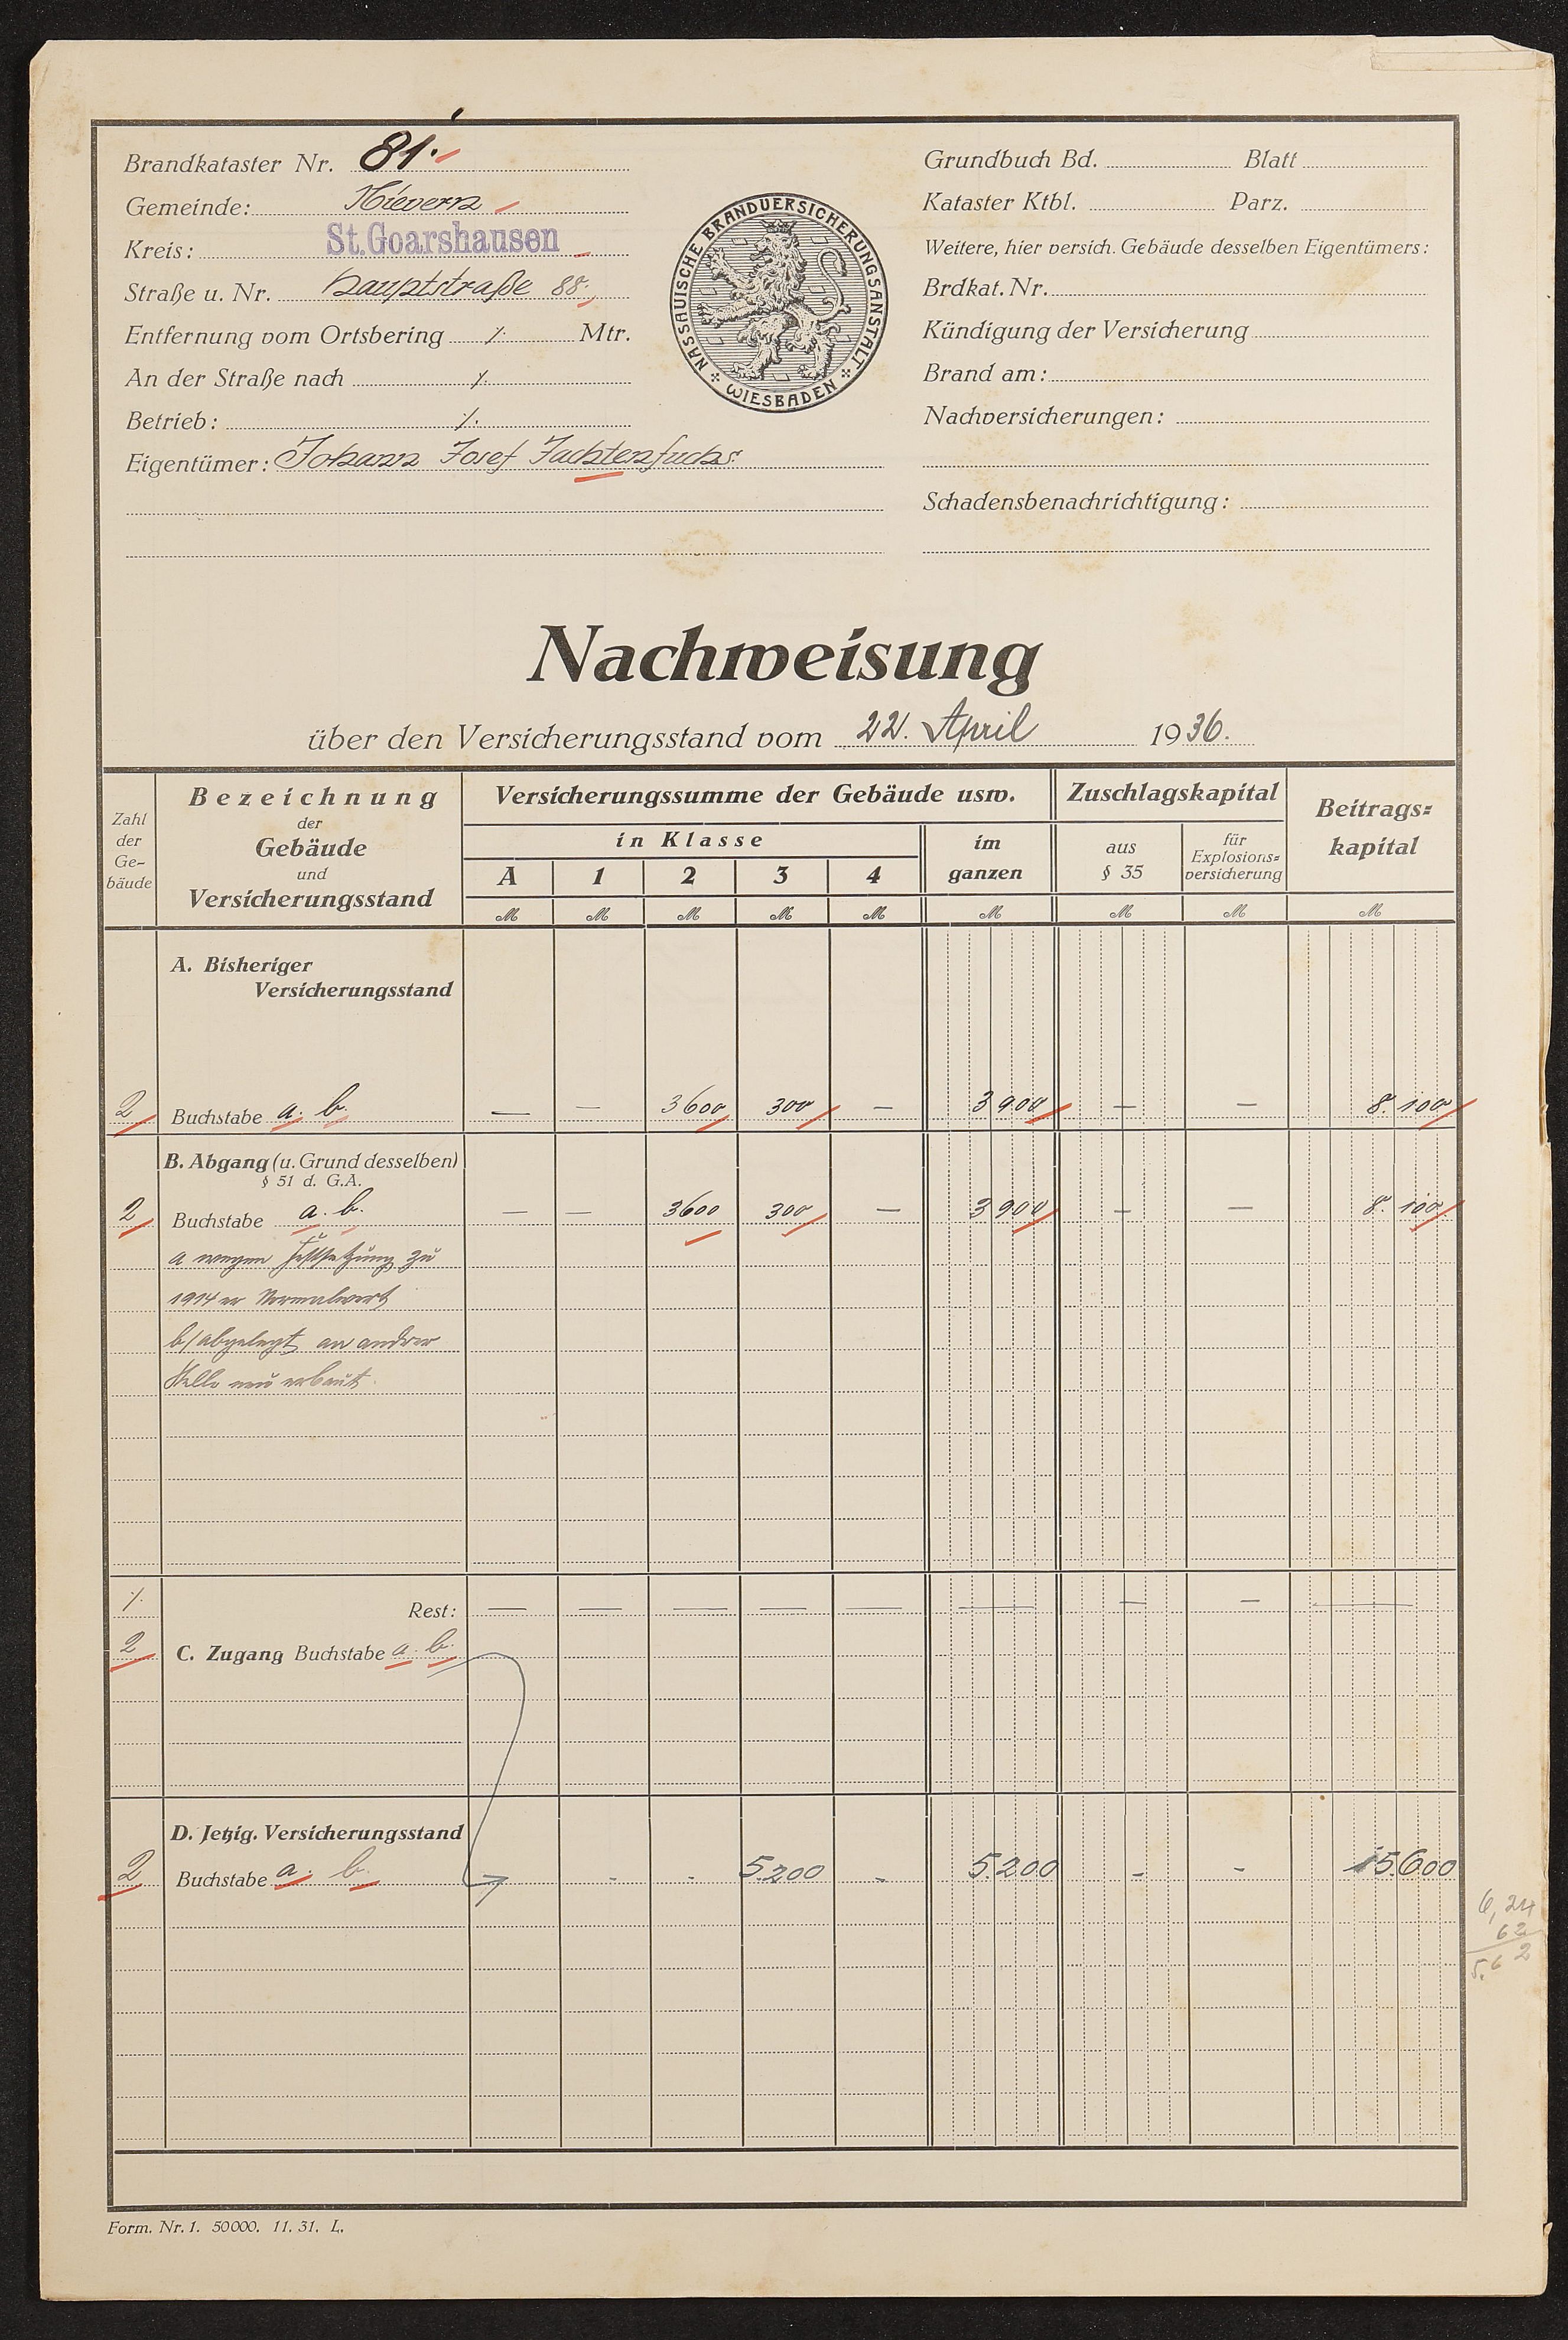 Brandkataster Nr. 81.
Gemeinde: Nievern
Kreis: St. Goarshausen
Straße u. Nr. Hauptstraße 88.
Entfernung vom Ortsbering ./. Mtr.
An der Straße nach ./.
Betrieb: ./.
Eigentümer: Johann Josef Fachtenfuchs
NASSAUISCHE BRANDVERSICHERUNGSANSTALT
WIESBADEN
Grundbuch Bd. Blatt
Kataster Ktbl. Parz.
Weitere, hier versich. Gebäude desselben Eigentümers:
Brdkat. Nr.
Kündigung der Versicherung
Brand am:
Nachversicherungen:
Schadensbenachrichtigung:
Nachweisung
über den Versicherungsstand vom 22. April 1936.
Zahl der Ge- bäude
Bezeichnung
der
Gebäude
und
Versicherungsstand
Versicherungssumme der Gebäude usw.
in Klasse
A 1 2 3 4
im ganzen
Zuschlagskapital
aus § 35
für Explosions= versicherung
Beitrags= kapital
M M M M M M M M M
A. Bisheriger
Versicherungsstand
2 Buchstabe a. b. — — 3600 300 — 3900 — — 8.100
B. Abgang (u. Grund desselben)
§ 51 d. G.A.
2 Buchstabe a. b. — — 3600 300 — 3900 — — 8.100
a wegen Festsetzung zu
1914er Normalwert
b/ abgelegt an andrer
Stelle neu erbaut.
./. Rest: — — — — — — — — —
2 C. Zugang Buchstabe a. b.
D. Jetzig. Versicherungsstand
2 Buchstabe a. b. - - 5.200 - 5.200 - - 15.600
6,24
62
5,62
Form. Nr. 1. 50000. 11. 31. L.